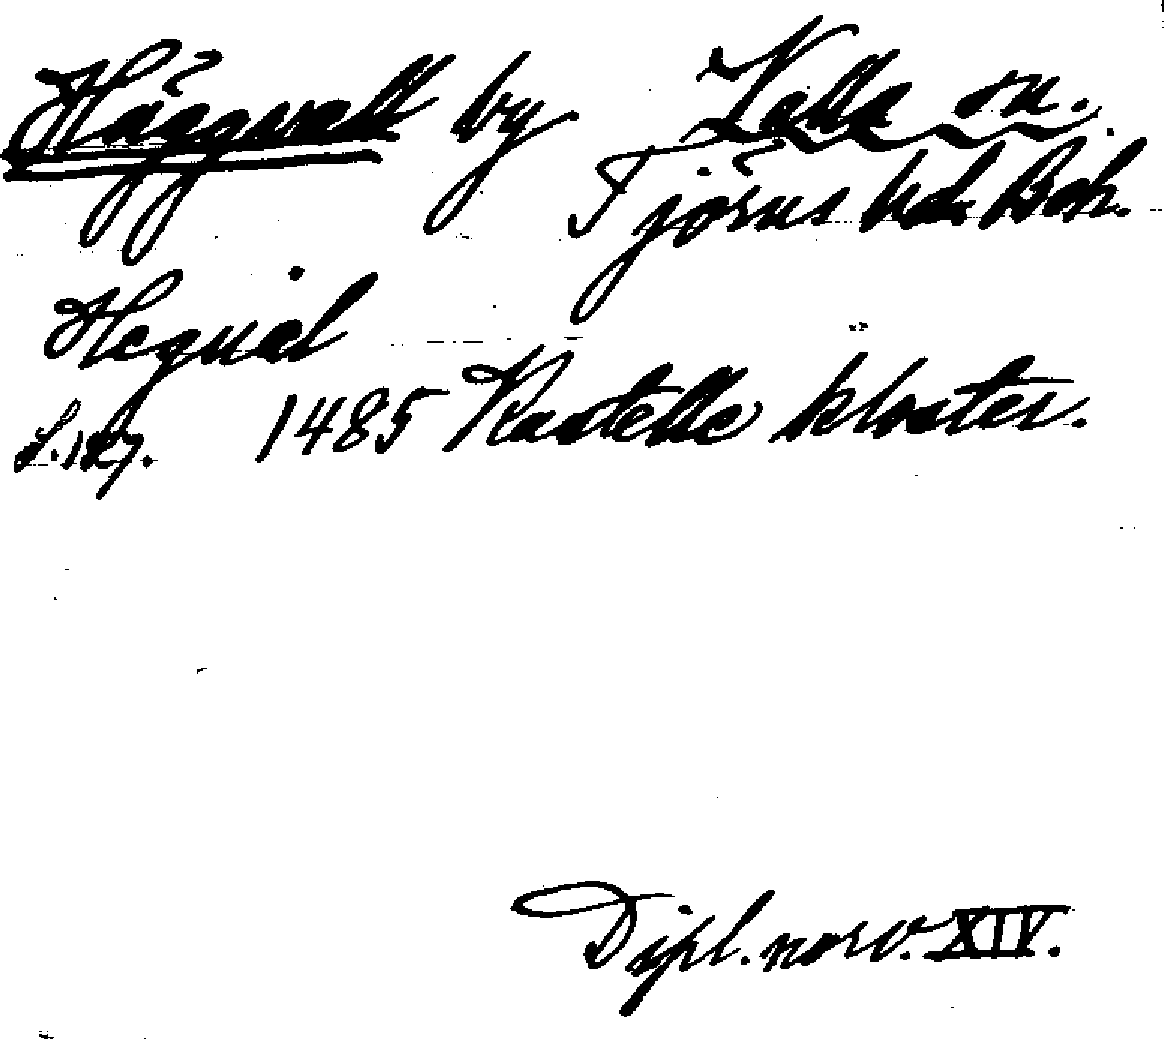 Häggvall by Valla sn.
Tjörns hd. Boh.
Hequal
S. 127. 1485 Kastelle kloster.
Dipl. norv. XIV.